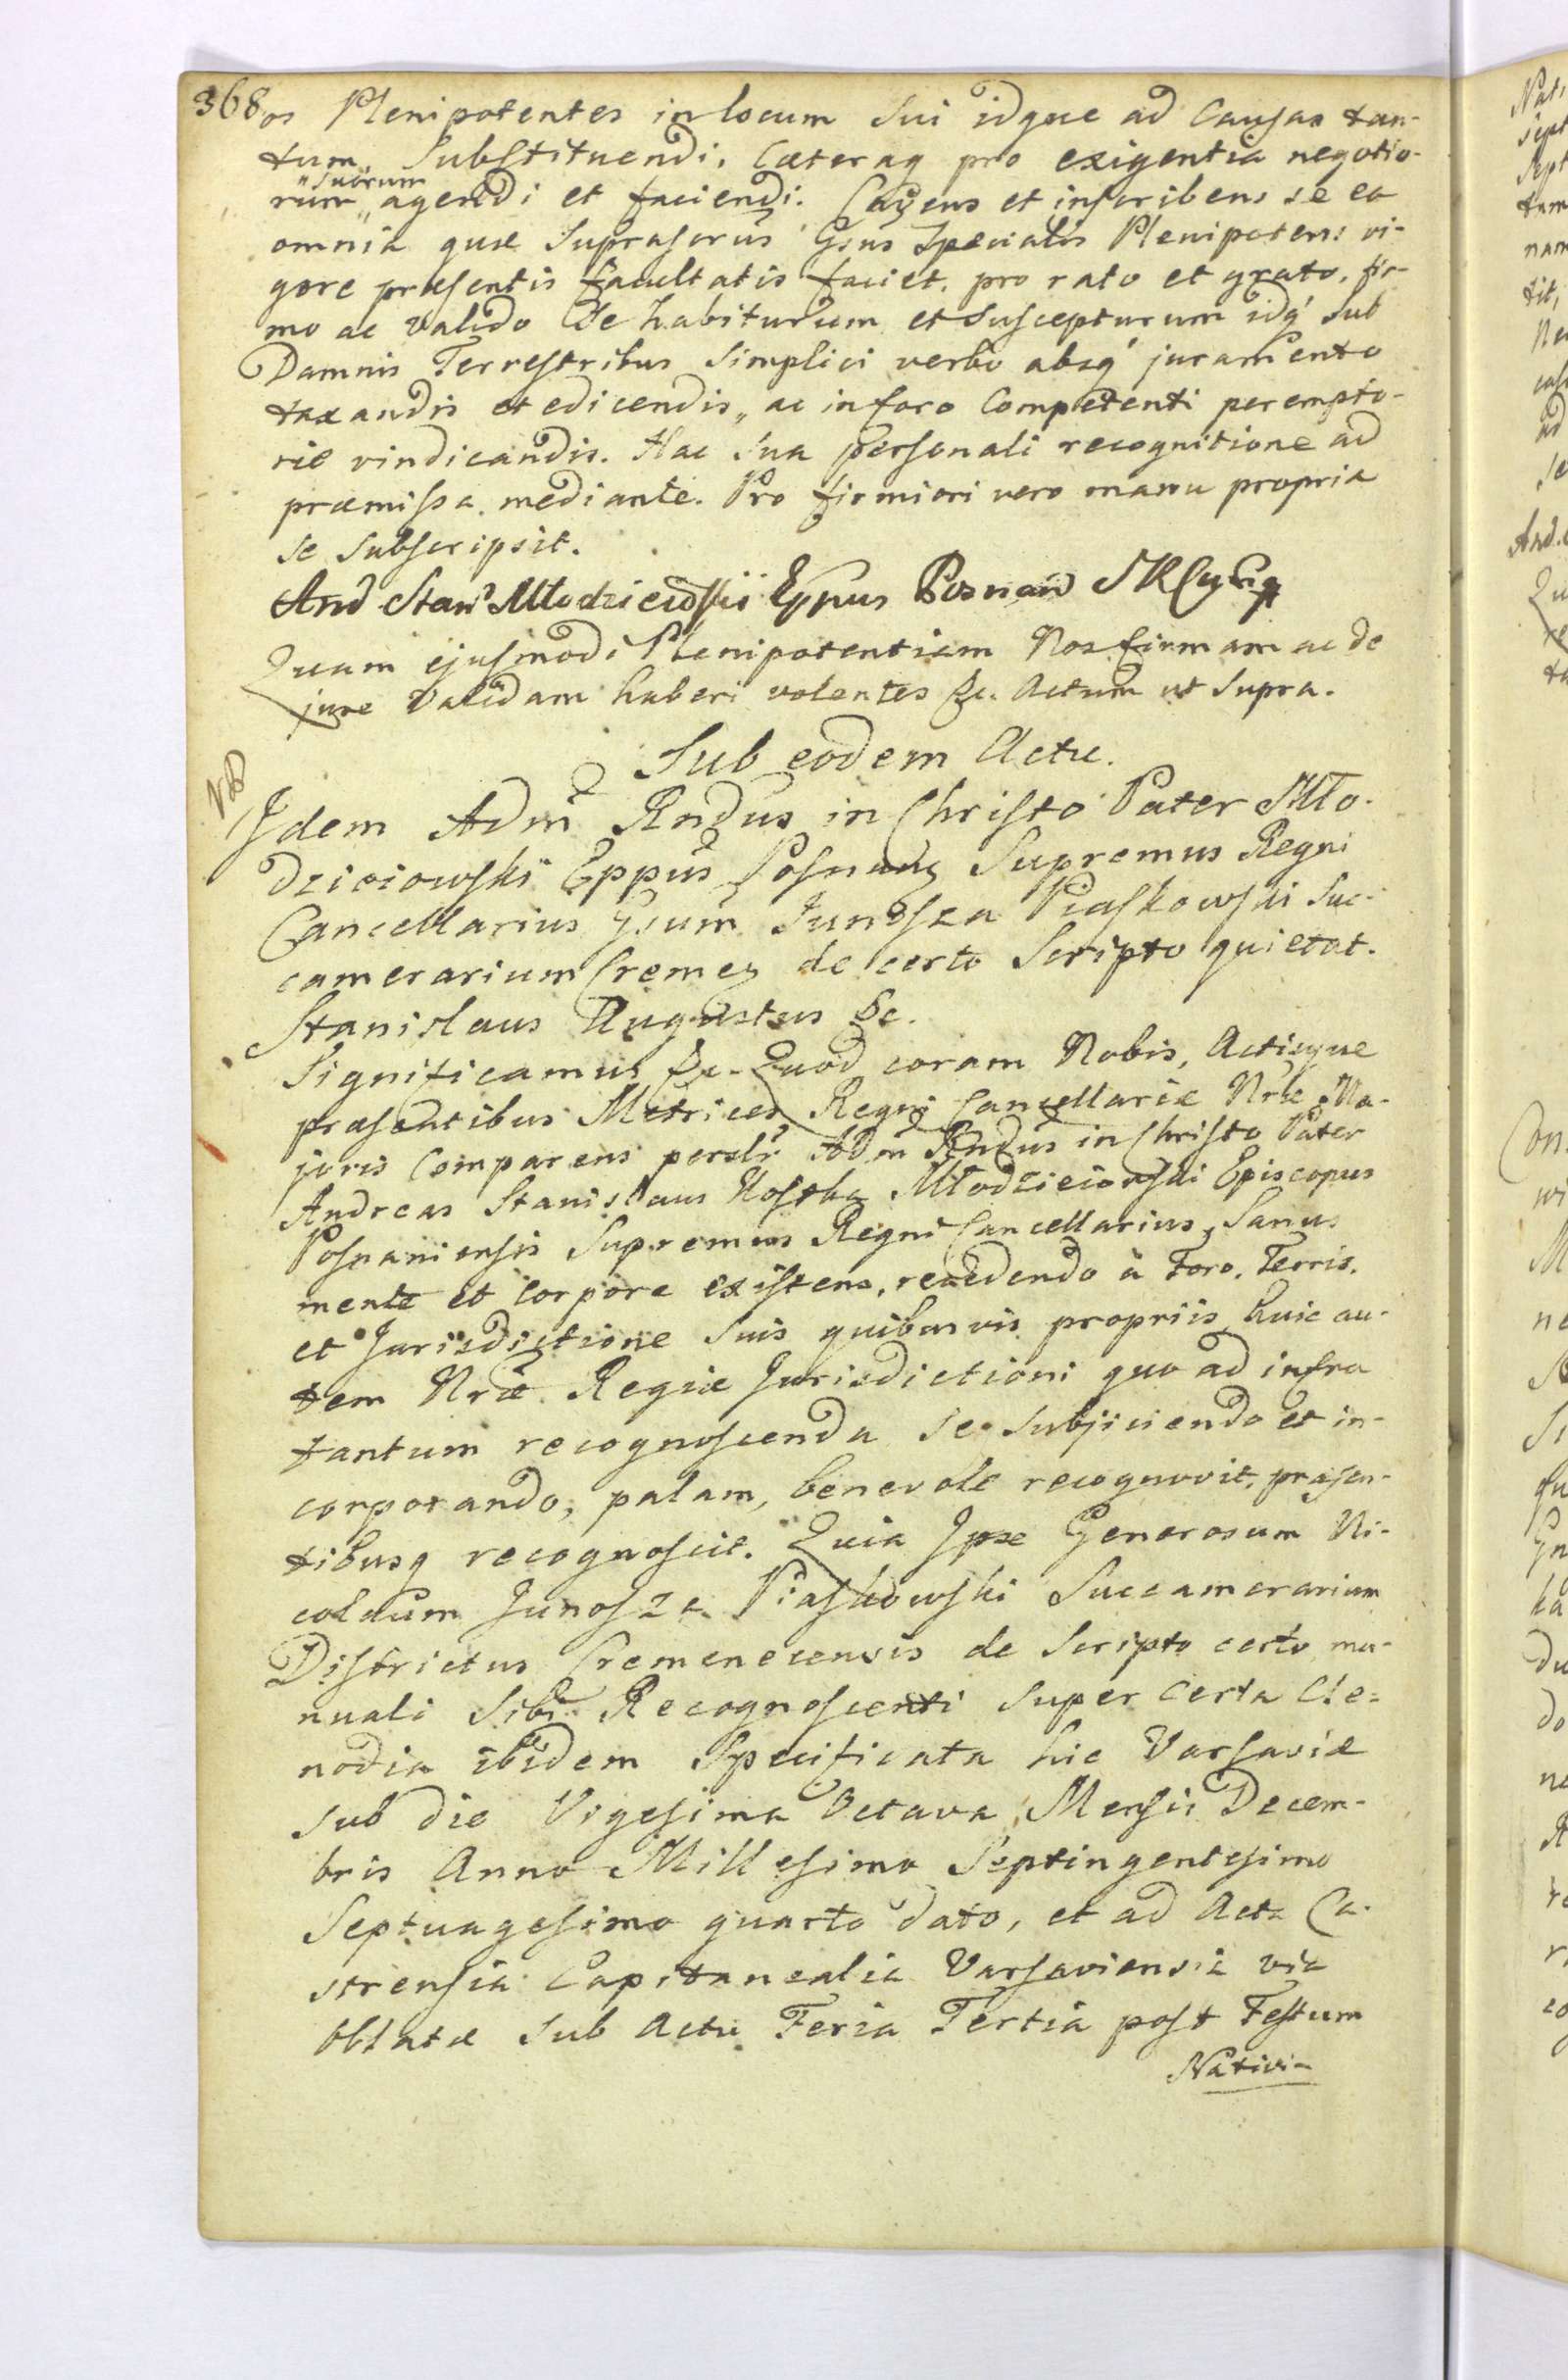 368
os Plenipotentes in locum Sui idque ad Causas tan-
tum, Substituendi. Cæteraq pro exigentia negotio-
rum „suorum„ agendi et faciendi. Cavens et inscribens se ea
omnia quæ Suprascrūs Gsus Specialis Plenipotens vi-
gore præsentis facultatis faciet, pro rato et grato, fir-
mo ac valido Se habiturum et Suscepturum idq' Sub
Damnis Terrestribus Simplici verbo absq' juramento
taxandis et edicendis„ ac in foro Competenti perempto-
rie vindicandis. Hac Sua personali recognitione ad
præmissa mediante. Pro firmiori vero manu propria
se Subscripsit.
And Stan Młodzieiowskii Eppus Posnan
Quam ejusmodi Plenipotentiam Nos firmam ac de
jure Validam haberi volentes &c. Actum ut Supra.
Sub eodem Actu.
NB
Idem Adm Rndus in Christo Pater Mło-
dzieiowski Eppus Posnan Supremus Regni
Cancellarius Gsum Junosza Piaskowski Suc-
camerarium Cremen de certo Scripto quietat.
Stanislaus Augustus &c.
Significamus &c. Quod coram Nobis, Actisque
præsentibus Metrices Regni Cancellariæ Nræ Ma-
joris Comparens persolr Adm Rndus in Christo Pater
Andreas Stanislaus Kostka Młodzieiowski Episcopus
Posnaniensis Supremus Regni Cancellarius, Sanus
mente et corpore existens, recedendo à Foro, Terris,
et Jurisdictione Suis quibusvis propriis, huic au-
tem Nræ Regiæ Jurisdictioni quo ad infra
tantum recognoscenda Se Subjiciendo et in-
corporando, palam, benevole recognovit, præsen-
tibusq recognoscit. Quia Ipse Generosum Ni-
colaum Junosza Piaskowski Succamerarium
Districtus Cremenecensis de Scripto certo ma-
nuali Sibi Recognoscenti Super Certa Cle=
nodia ibidem Specificata hic Varsaviæ
sub die Vigesima Octava Mensis Decem-
bris Anno Millesimo Septingentesimo
Septuagesimo quarto dato, et ad Acta Ca-
strensia Capitanealia Varsaviensia via
Oblatæ Sub Actu Feria Tertia post Festum
Nativi-